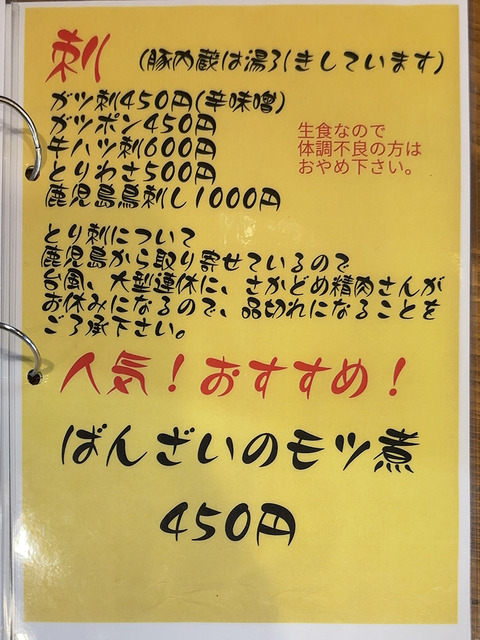 刺 (豚内蔵は湯引きしています)
ガツ刺450円(辛味噌)
ガツポン450円
牛ハツ刺600円
とりわさ500円
鹿児島鳥刺し1000円
生食なので
体調不良の方は
おやめ下さい。
とり刺について
鹿児島から取り寄せているので
台風、大型連休に、さかどめ精肉さんが
お休みになるので、品切れになることを
ご了承下さい。
人気!おすすめ!
ばんざいのモツ煮
450円